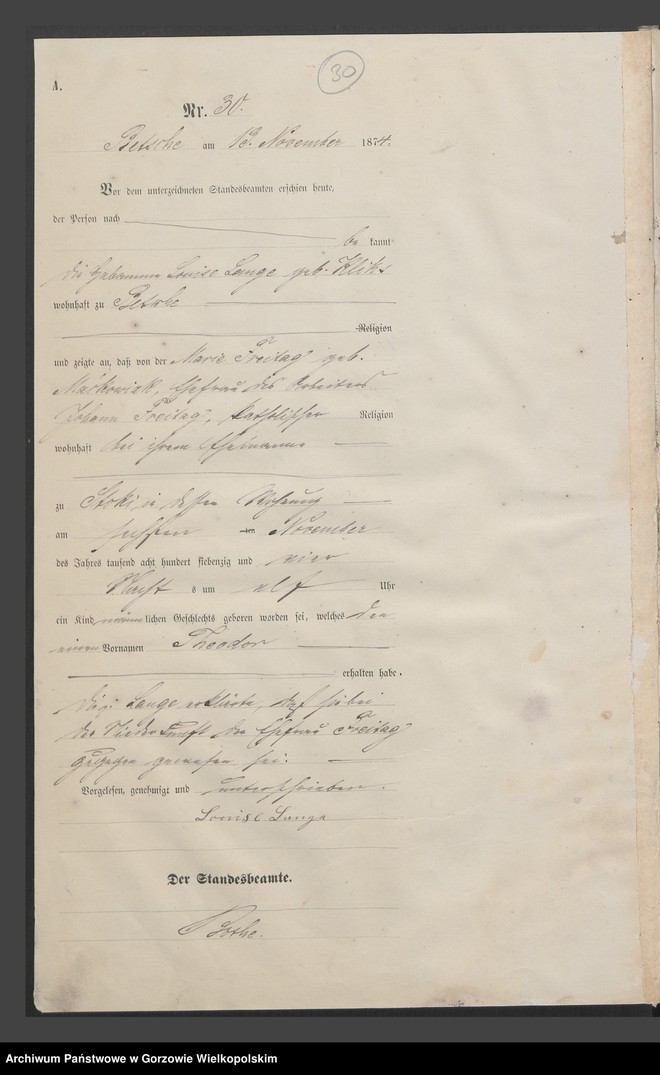 30
A.
Nr. 30.
Betsche am 13. November 1874.
Vor dem unterzeichneten Standesbeamten erschien heute,
der Person nach
be kannt
die Hebamme Louise Lange geb. Kliks
wohnhaft zu Betsche
Religion
und zeigte an, daß von der Marie Freitag geb.
Markowiak, Ehefrau des Arbeiters
Johann Freitag, katholischer Religion
wohnhaft bei ihrem Ehemanne
zu Stoki in dessen Wohnung
am ten November
des Jahres tausend acht hundert siebenzig und vier
Nacht s um elf Uhr
ein Kind männlichen Geschlechts geboren worden sei, welches den
einen Vornamen Theodor
erhalten habe.
Die Lange erklärte, daß sie bei
der Niederkunft der Ehefrau Freitag
zugegen gewesen sei.
Vorgelesen, genehmigt und unterschrieben.
Louise Lange
Der Standesbeamte.
Bothe.
Archiwum Państwowe w Gorzowie Wielkopolskim